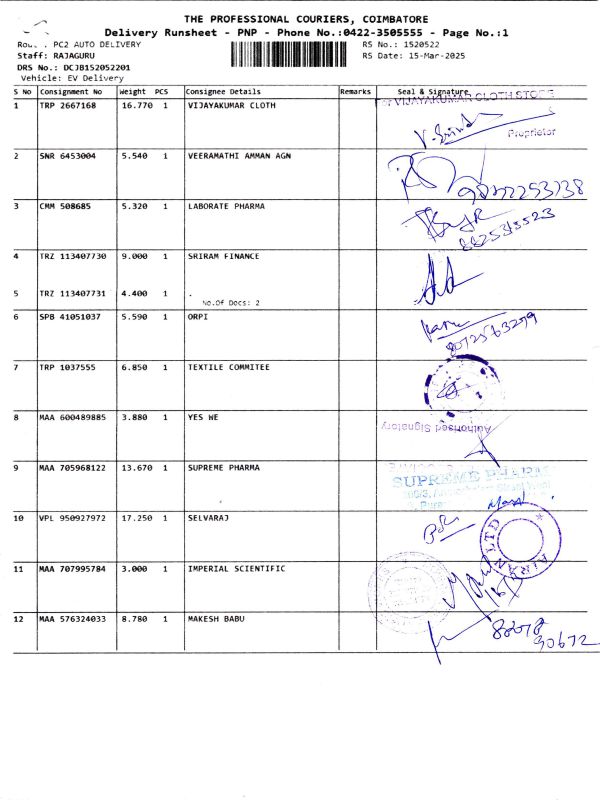 THE PROFESSIONAL COURIERS, COIMBATORE
Delivery Runsheet - PNP - Phone No.:0422-3505555 - Page No.:1
PC2 AUTO DELIVERY RS No.: 1520522
Staff: RAJAGURU RS Date: 15-Mar-2025
DRS No.: DCJB152052201
Vehicle: EV Delivery
S No Consignment No Weight PCS Consignee Details Remarks Seal & Signature
VIJAYAKUMAR CLOTH STORE
1 TRP 2667168 16.770 1 VIJAYAKUMAR CLOTH
Proprietor
2 SNR 6453004 5.540 1 VEERAMATHI AMMAN AGN
3 CMM 508685 5.320 1 LABORATE PHARMA
4 TRZ 113407730 9.000 1 SRIRAM FINANCE
5 TRZ 113407731 4.400 1 .
No.Of Docs: 2
6 SPB 41051037 5.590 1 ORPI
8072563279
7 TRP 1037555 6.850 1 TEXTILE COMMITEE
8 MAA 600489885 3.880 1 YES WE
Authorised Signatory
9 MAA 705968122 13.670 1 SUPREME PHARMA
SUPREME PHARMA
10 VPL 950927972 17.250 1 SELVARAJ
11 MAA 707995784 3.000 1 IMPERIAL SCIENTIFIC
12 MAA 576324033 8.780 1 MAKESH BABU
88078
30672